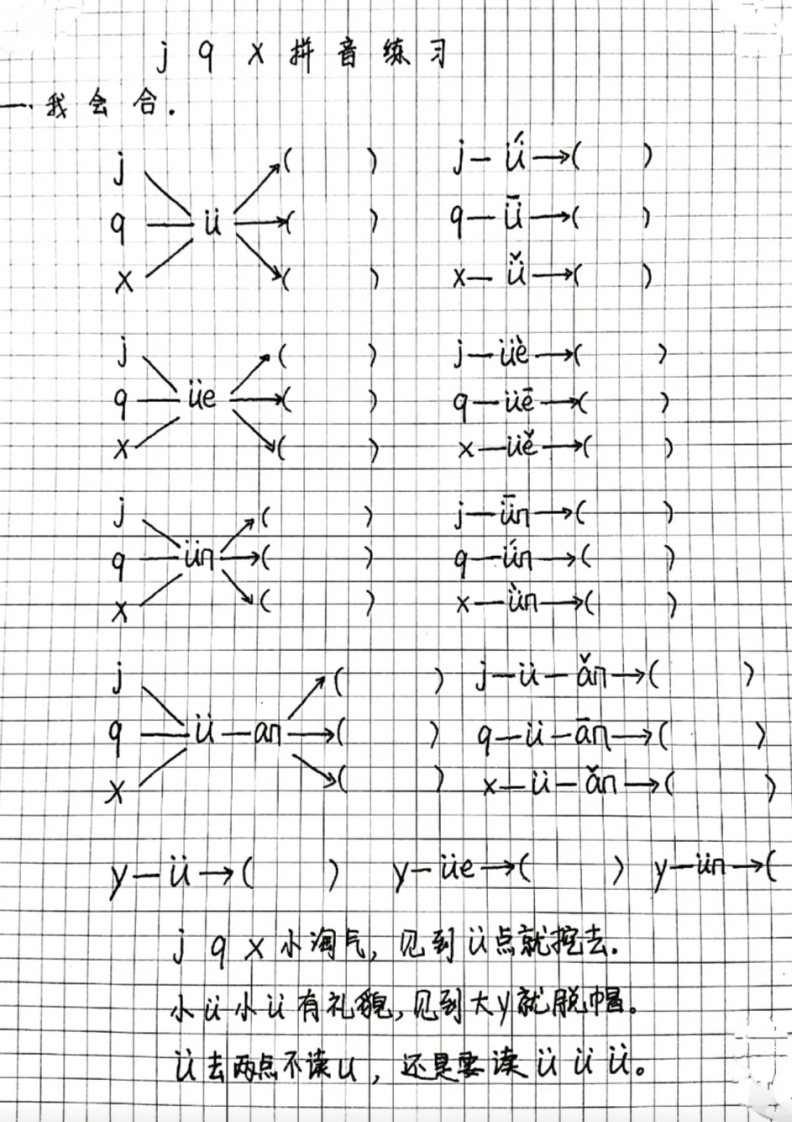 j q x 拼音练习
一.我会合.
j ( ) j—ǘ→( )
q — ü → ( ) q—ǖ→( )
x ( ) x—ǚ→( )
j ( ) j—üè→( )
q — üe → ( ) q—üē→( )
x ( ) x—üě→( )
j ( ) j—ǖn→( )
q — ün → ( ) q—ǘn→( )
x ( ) x—ǜn→( )
j ( ) j—ü—ǎn→( )
q — ü—an → ( ) q—ü—ān→( )
x ( ) x—ü—ǎn→( )
y—ü→( ) y—üe→( ) y—ün→(
j q x 小淘气,见到ü点就挖去.
小ü小ü有礼貌,见到大y就脱帽。
ü去两点不读u,还是要读ü ü ü。